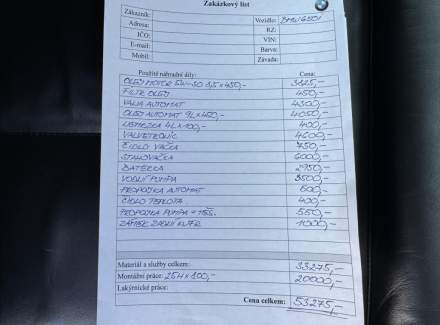 Zakázkový list
Zákazník:
Adresa: Vozidlo: BMW 650i
IČO: RZ:
E-mail: VIN:
Mobil: Barva:
Závada:
Použité náhradní díly: Cena:
OLEJ MOTOR 5W-30 8,5×450,- 3825,-
FILTR OLEJ 450,-
VANA AUTOMAT 4300,-
OLEJ AUTOMAT 9L×450,- 4050,-
4L×100,- 400,-
VALVETRONIC 4600,-
ČIDLO VAČKA 750,-
6000,-
BATERKA
VODNÍ PUMPA 3500,-
AUTOMAT 600,-
ČIDLO TEPLOTA 400,-
PUMPA 550,-
ZÁMEK ZADNÍ KUFR 1000,-
Materiál a služby celkem: 33275,-
Montážní práce: 25H×800,- 20000,-
Lakýrnické práce:
Cena celkem: 53275,-